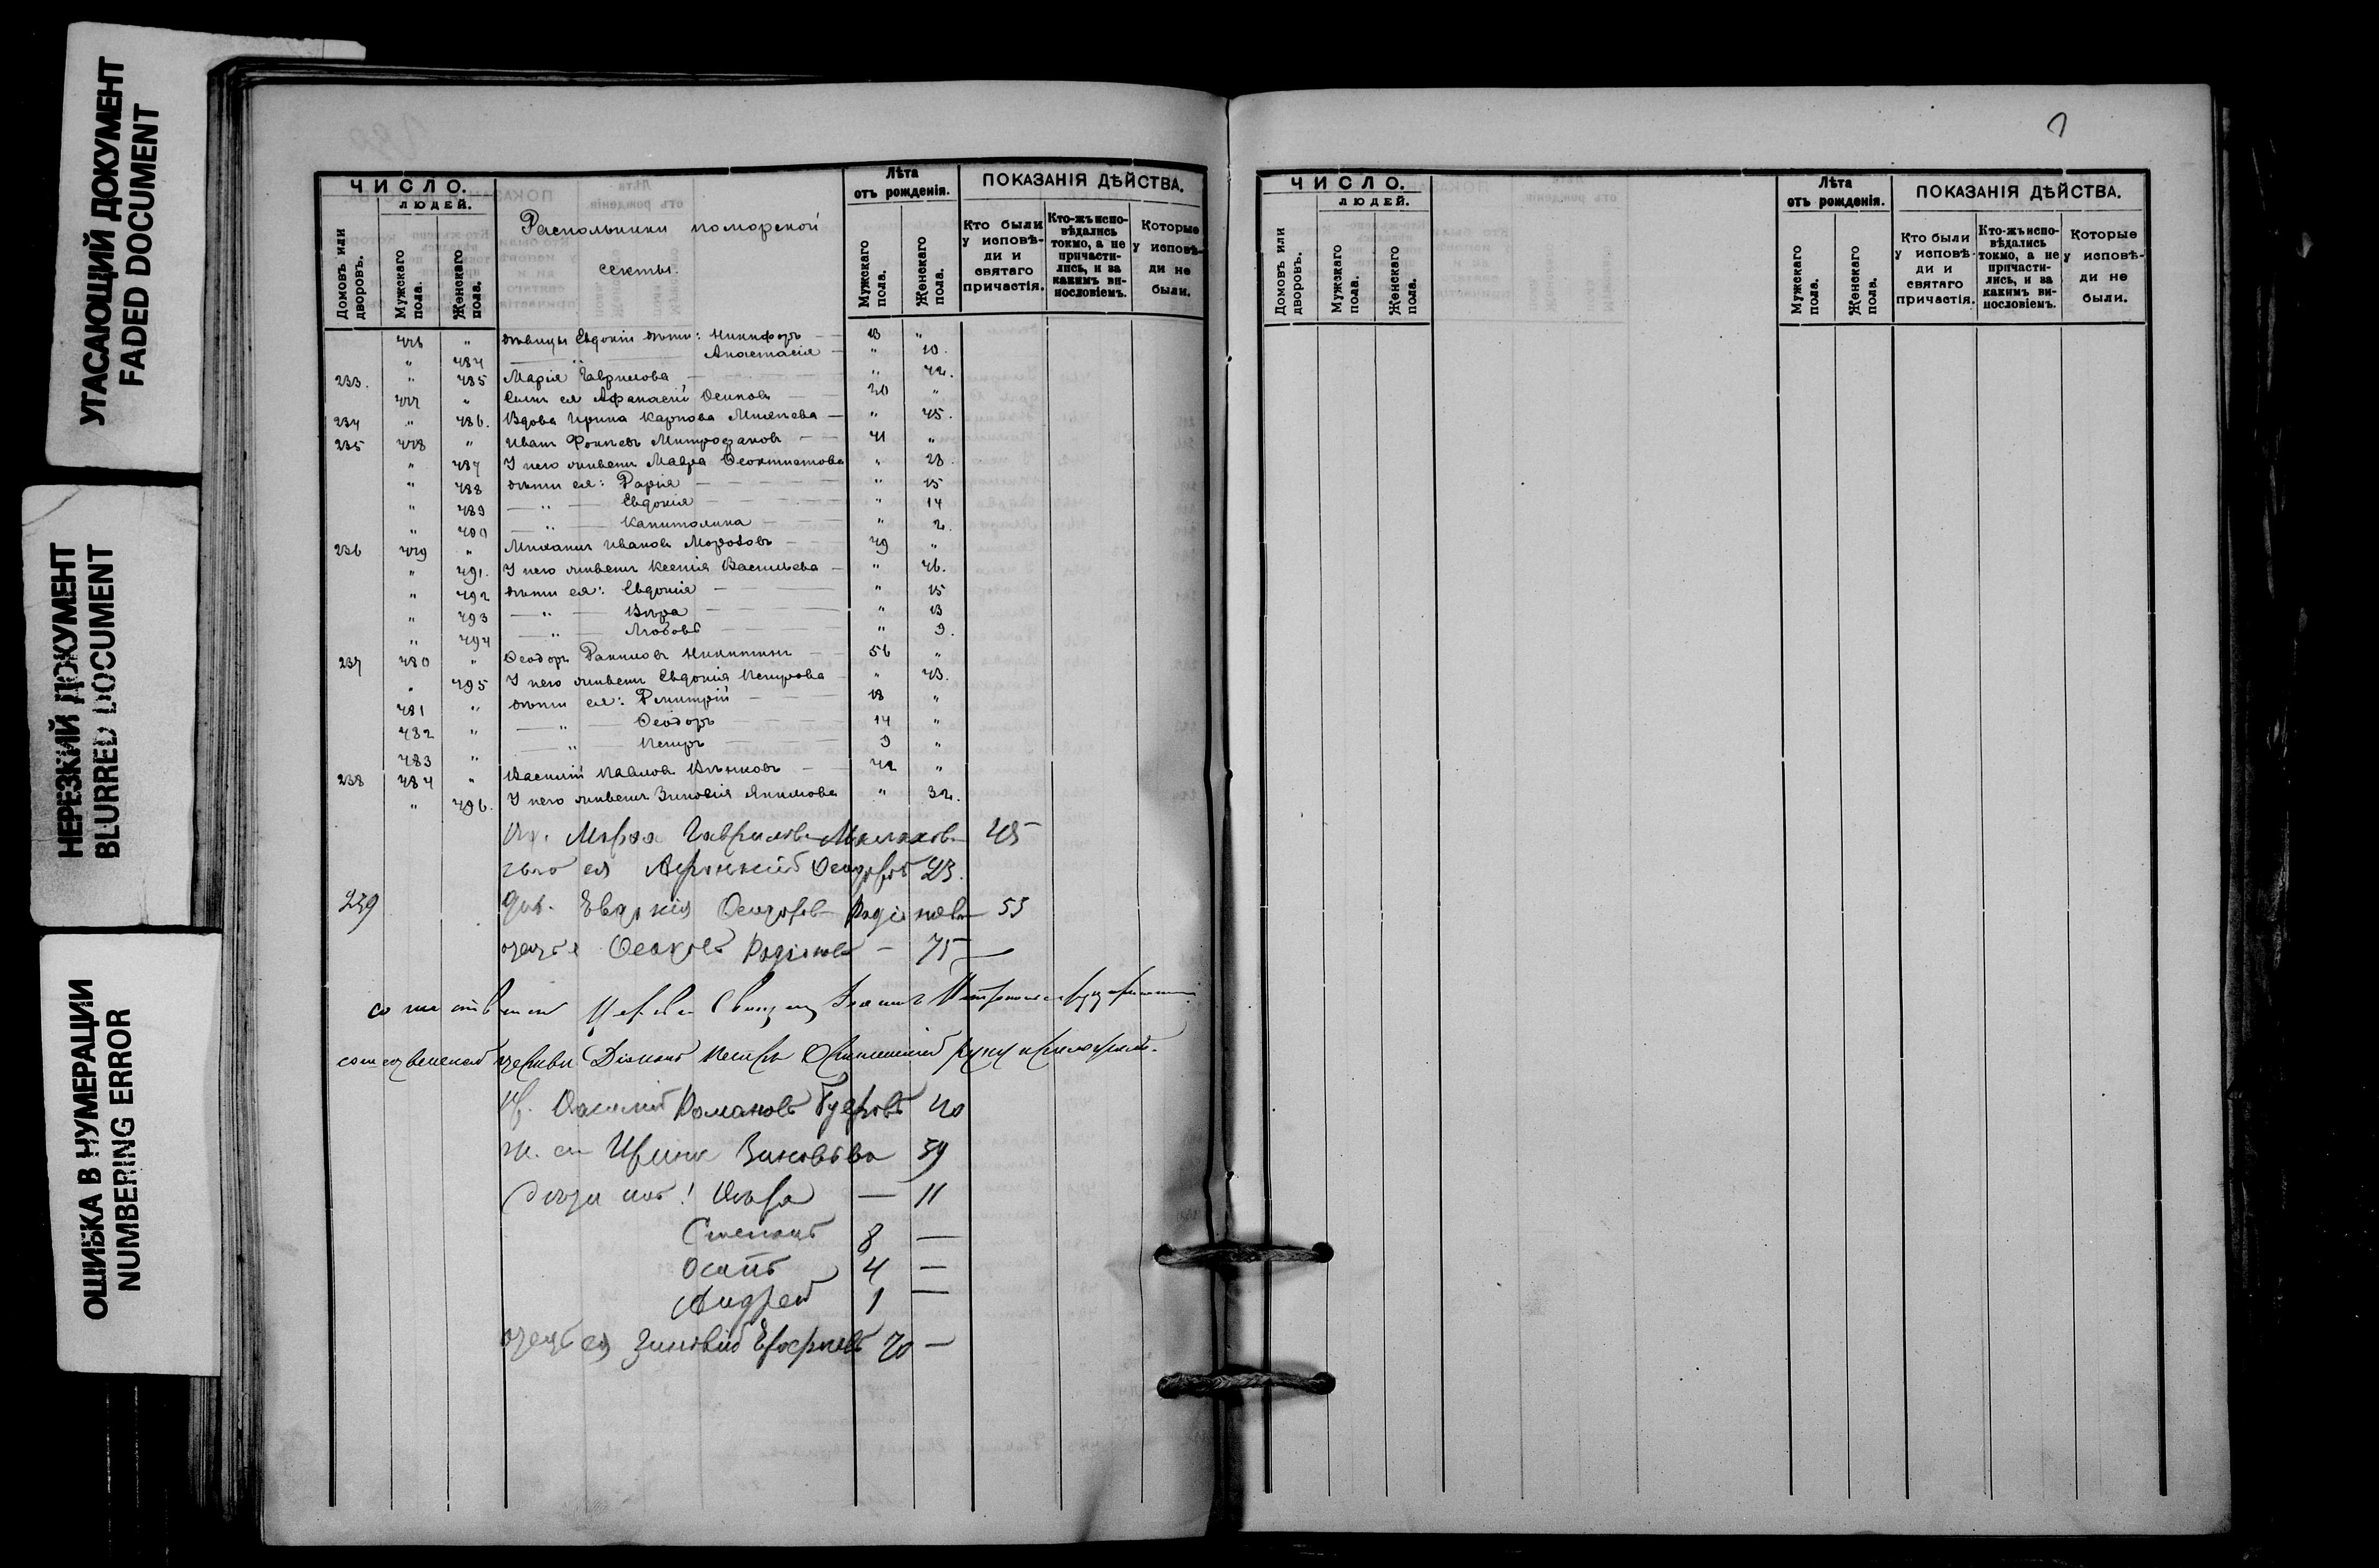 УГАСАЮЩИЙ ДОКУМЕНТ
FADED DOCUMENT
НЕРЕЗКИЙ ДОКУМЕНТ
BLURRED DOCUMENT
ОШИБКА В НУМЕРАЦИИ
NUMBERING ERROR
ЧИСЛО.
ЛЮДЕЙ.
Домовъ или дворовъ.
Мужскаго пола.
Женскаго пола.
Раскольники поморской
секты.
Лѣта
отъ рожденія.
Мужскаго пола.
Женскаго пола.
ПОКАЗАНІЯ ДѢЙСТВА.
Кто были у исповѣди и святаго причастія.
Кто-жъ исповѣдались токмо, а не причастились, и за какимъ винословіемъ.
Которые у исповѣди не были.
" дѣвицы Евдокіи дѣти: Никифоръ — 13 "
" 484 — " — Анастасія — " 10.
233. " 485 Марія Гаврилова — " 42.
" Сынъ ея Афанасій Осиповъ — 20 "
234 " 486. Вдова Ирина Карпова — " 45.
235 478 " Иванъ Фокѣевъ Митрофановъ — 41 "
" 487 У него живетъ Мавра Ѳеоктистова " 28.
" 488 дѣти ея: Дарія — " 15
" 489 — " — Евдокія — " 14
" 490 — " — Капитолина — " 2.
236 479 " Михаилъ Ивановъ Морозовъ — 49 "
" 491. У него живетъ Ксенія Васильева — " 46.
" 492 дѣти ея: Евдокія — " 15
" 493 — " — Вѣра — " 13
" 494 — " — Любовь — " 9.
237 480 " Ѳеодоръ Даниловъ Никитинъ — 56 "
" 495 У него живетъ Евдокія Петрова — " 43.
481 " дѣти ея: Дмитрій — 18 "
482 " — " — Ѳеодоръ — 14 "
483 " — " — Петръ — 9 "
238 484 " Василій Павловъ — 42 "
" 496. У него живетъ Зиновія Якимова " 32.
Марѳа Гаврилова 45
ея Ѳеодоровъ 23.
239 Евдокія Ѳеодорова Родіонова 55
отецъ ея Родіоновъ — 75 —
Церкви Священникъ Іоаннъ
церкви Діаконъ Петръ руку приложилъ.
Василій Романовъ 40
ж. ея Ирина Зиновьева 39
дѣти ихъ: Вѣра — 11
Степанъ 8 —
Осипъ 4 —
Андрей 1 —
отецъ ея Зиновій 70 —
ЧИСЛО.
ЛЮДЕЙ.
Домовъ или дворовъ.
Мужскаго пола.
Женскаго пола.
Лѣта
отъ рожденія.
Мужскаго пола.
Женскаго пола.
ПОКАЗАНІЯ ДѢЙСТВА.
Кто были у исповѣди и святаго причастія.
Кто-жъ исповѣдались токмо, а не причастились, и за какимъ винословіемъ.
Которые у исповѣди не были.